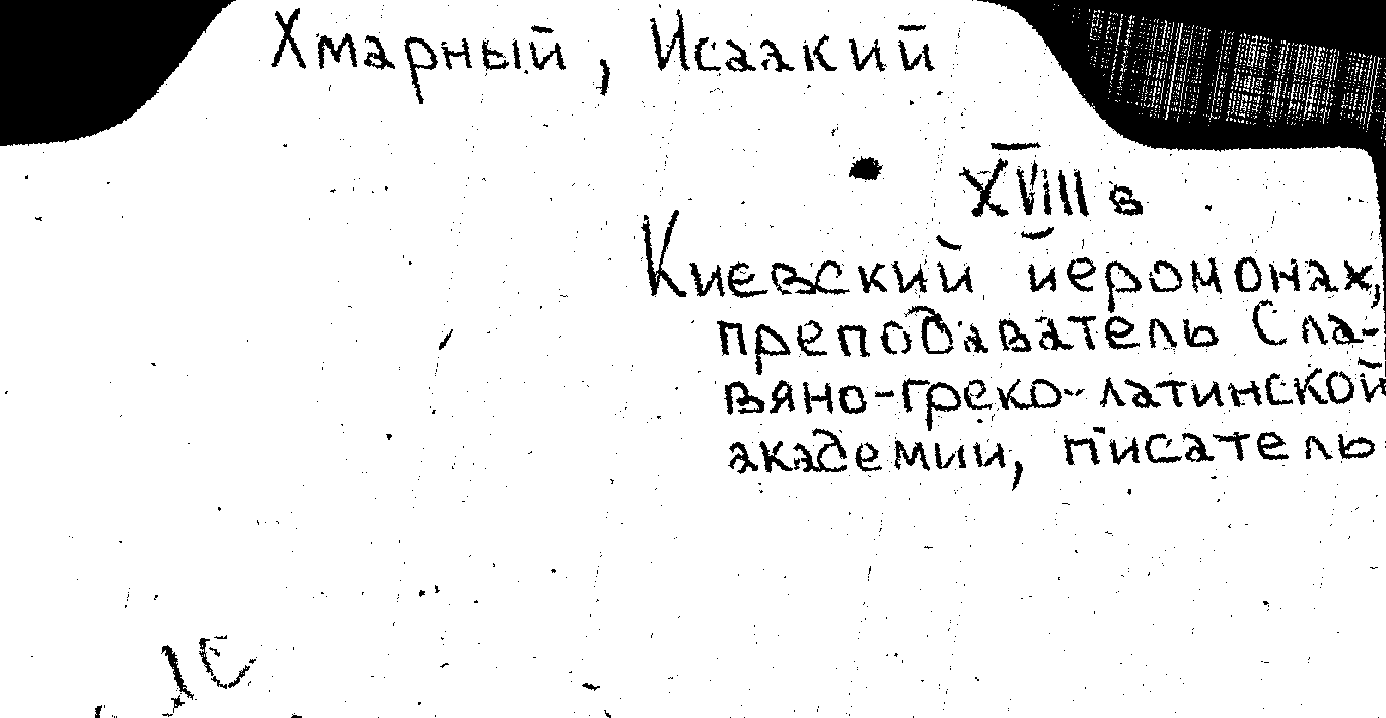 Хмарный, Исаакий
XVIII в
Киевский йеромонах,
преподаватель Сла-
вяно-греко-латинской
академии, писатель